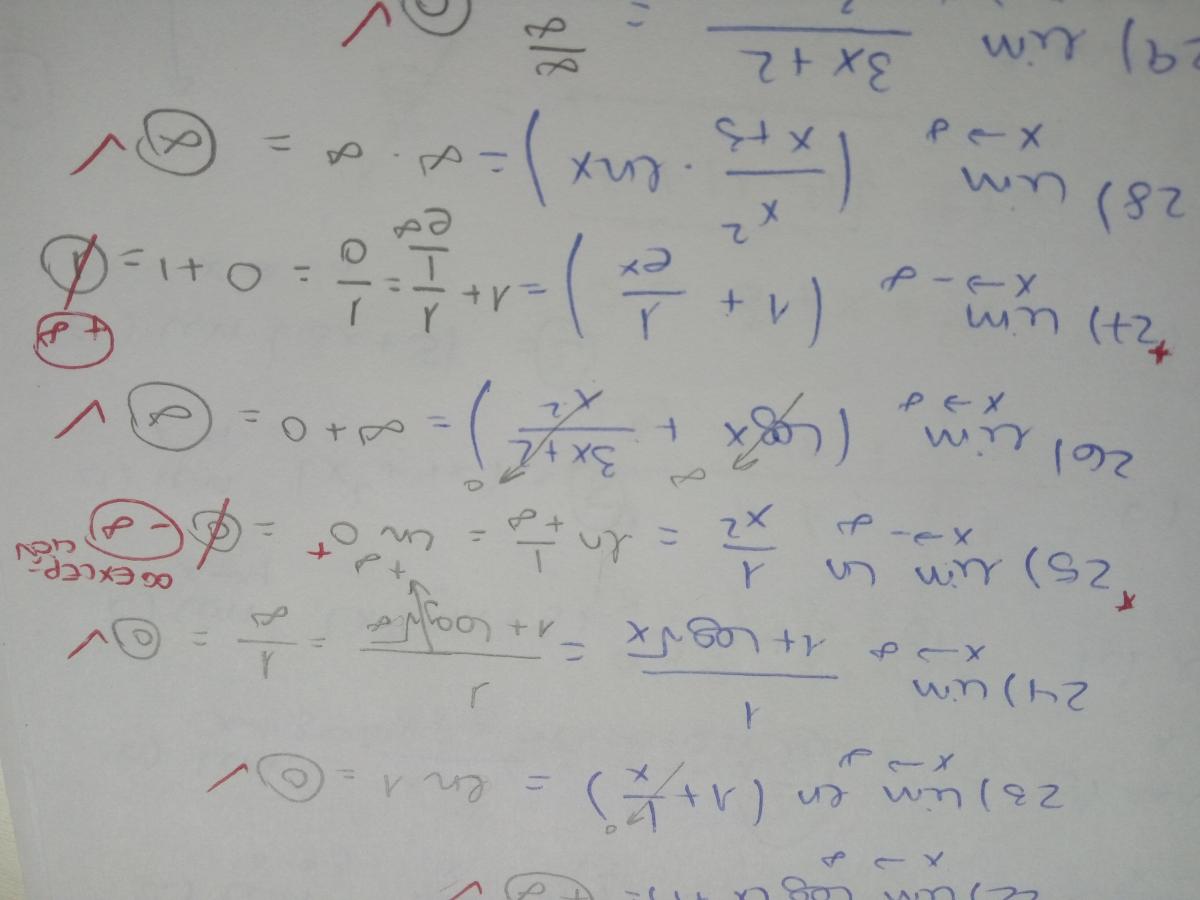 x→∞
23) lim ln (1 + 1/x) = ln 1 = 0 ✓
x→∞
24) lim 1/(1+log√x) = 1/(1+log√∞) = 1/∞ = 0 ✓
x→∞
+∞
* 25) lim ln 1/x² = ln 1/+∞ = ln 0⁺ = 0 -∞
x→-∞
26) lim (log x + (3x+2)/x²) = ∞+0 = ∞ ✓
x→∞
* 27) lim (1 + 1/eˣ) = 1+ 1/e^∞ = 1/0 = 0+1 = 1 +∞
x→-∞
28) lim (x²/(x+3) · ln x) = ∞·∞ = ∞ ✓
x→∞
29) lim 3x+2 = ∞/∞ 0 ✓